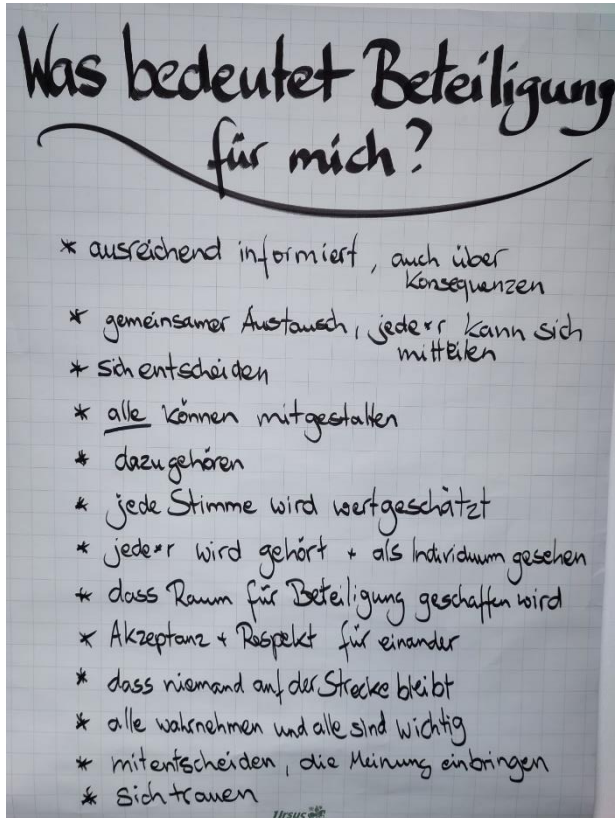 Was bedeutet Beteiligung
für mich?
* ausreichend informiert, auch über
Konsequenzen
* gemeinsamer Austausch, jede*r kann sich
mitteilen
* sich entscheiden
* alle können mitgestalten
* dazugehören
* jede Stimme wird wertgeschätzt
* jede*r wird gehört + als Individuum gesehen
* dass Raum für Beteiligung geschaffen wird
* Akzeptanz + Respekt für einander
* dass niemand auf der Strecke bleibt
* alle wahrnehmen und alle sind wichtig
* mitentscheiden, die Meinung einbringen
* sich trauen
Ursus